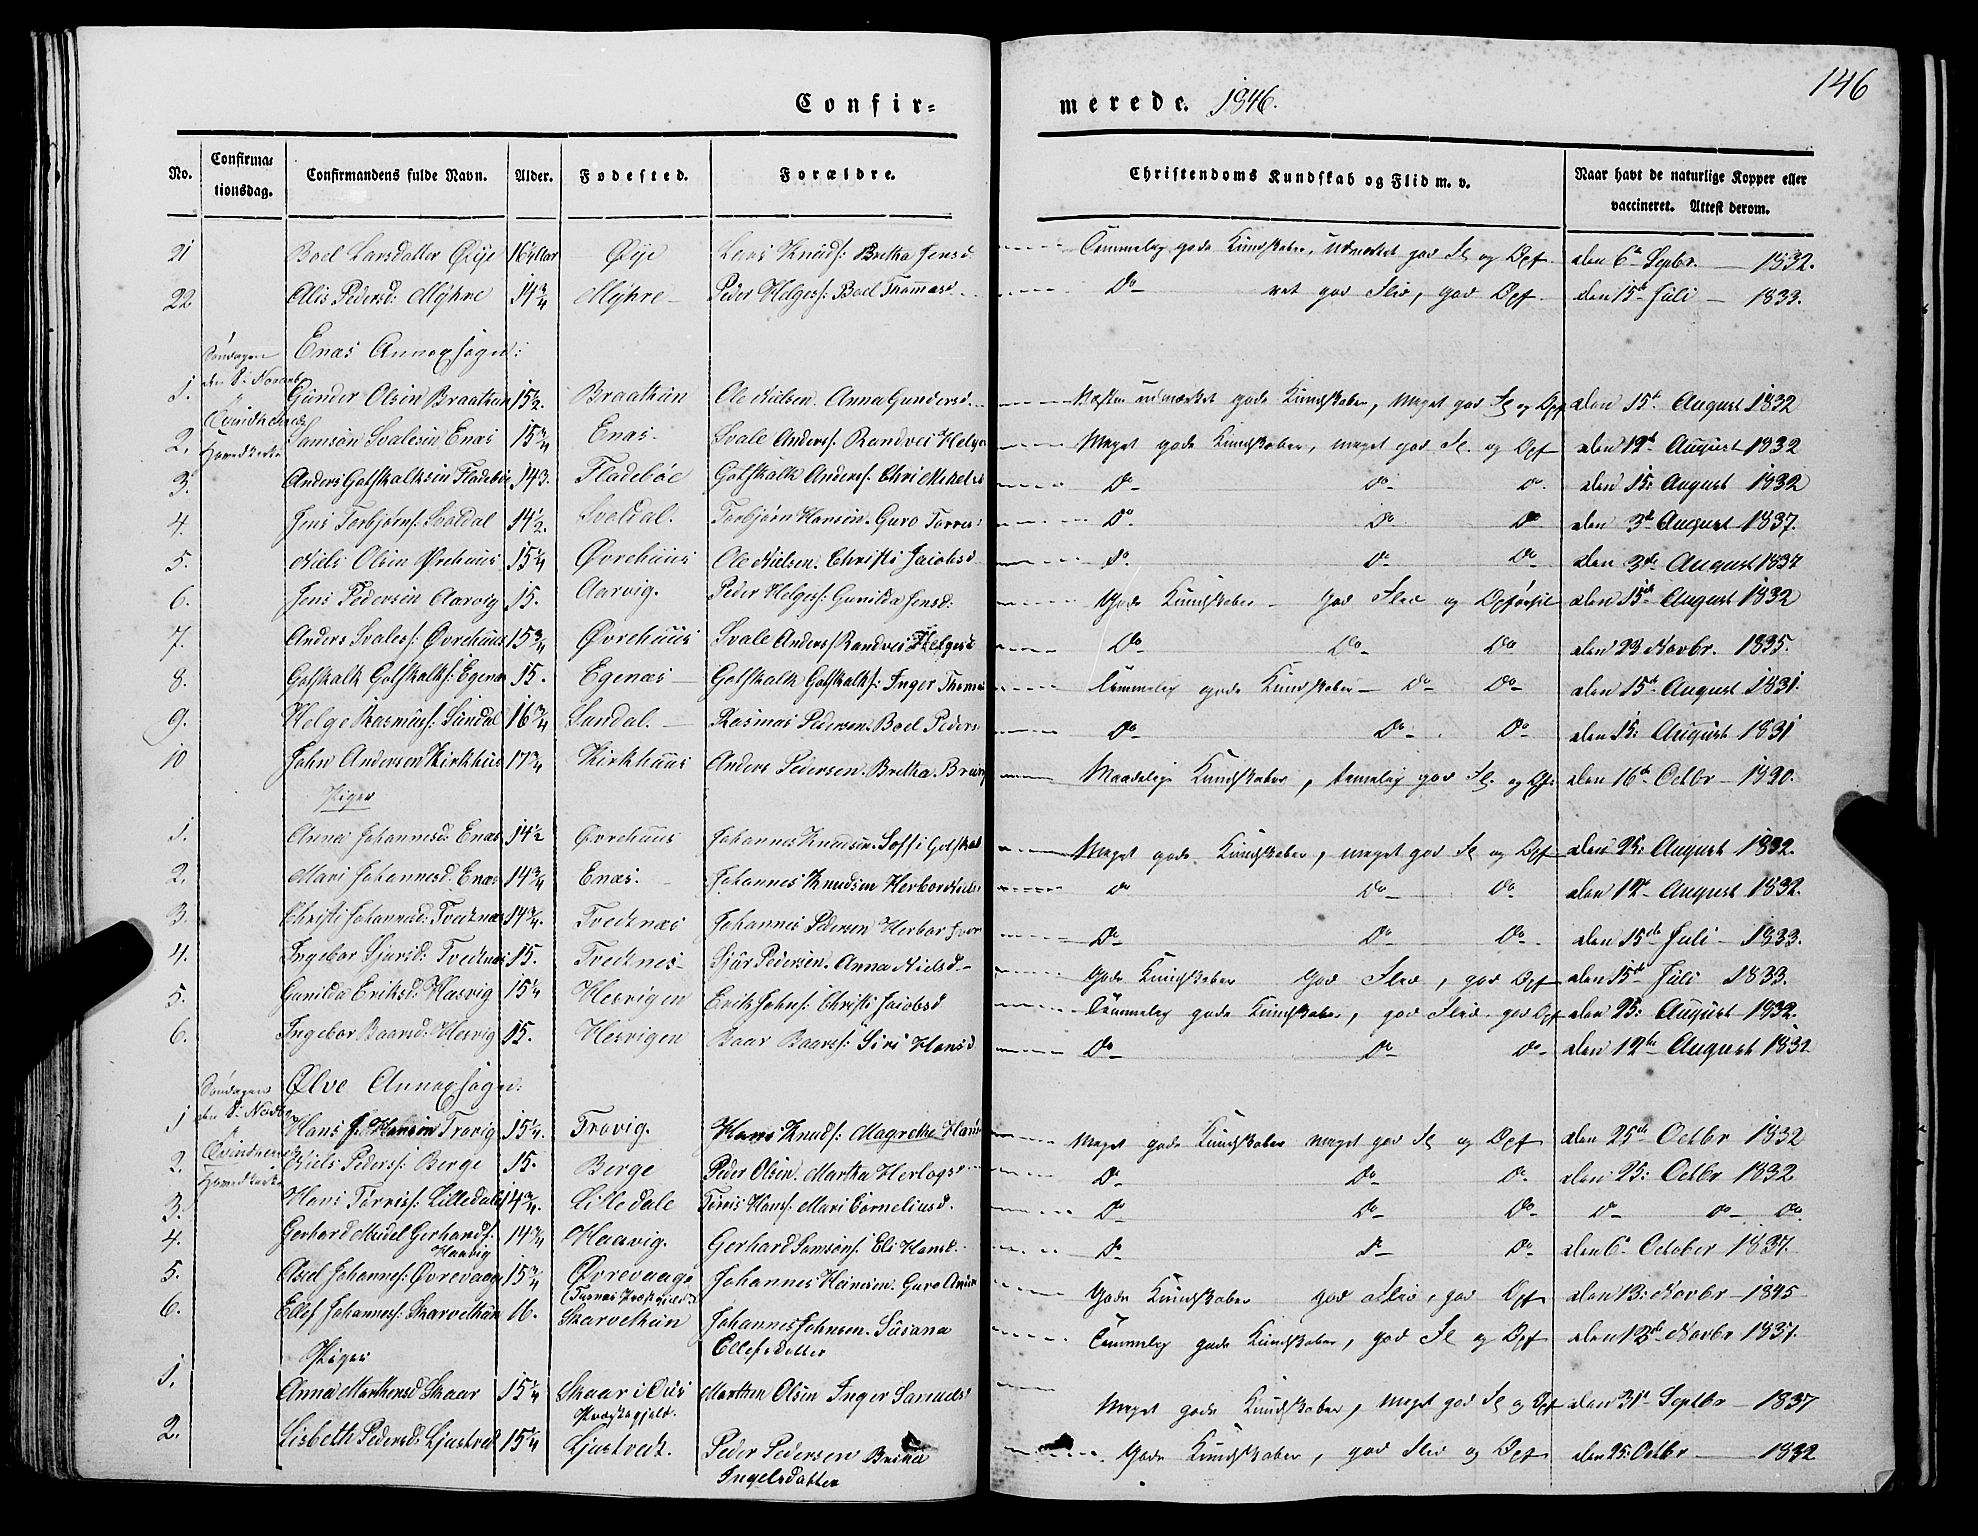 146
Confir- merede. 1846.
No. Confirma- tionsdag. Confirmandens fulde Navn. Alder. Fødested. Forældre. Christendoms Kundskab og Flid m. v. Naar havt de naturlige Kopper eller vaccineret. Attest derom.
21 Boel Larsdatter Øye 16 Øye Lars Knuds: Bretha Jensd Temmelig gode Kundskaber, udmærket god Fl og Opf den 6te Septbr. 1832.
22 Alis Pedersd: Myhre 14 3/4 Myhre Peder Helges: Boel Thomasd Do god Flid, god Opf. den 15de Juli 1833.
Søndagen den 8de Novemb Qvindherreds Hovedkirke
Enæs Annexsogn:
1. Gunder Olsen Braathun 15 1/2. Braathun Ole Nilsen. Anna Gundersd. Næsten udmærket gode Kundskaber, meget god Fl og Opf den 15de August 1832
2. Samson Svalesen Enæs 15 3/4 Enæs. Svale Anders: Randvei Helge Meget gode Kundskaber, meget god Fl. og Opf den 12te August 1832
3. Anders Gotskalksen Fladebøe 14 3. Fladebøe Gotskalk Anders: Chri Mikelsd Do do do. den 15: August 1832
4. Jens Torbjørns: Svaldal 14 1/2. Svaldal. Torbjørn Hansen. Guro Do. Do Do den 3de August 1837.
5. Niels Olsen Øvrehuus 15 1/4 Øvrehuus Ole Nielsen. Christi Jacobsd Do. Do Do den 3de August 1837
6. Jens Pedersen Aarvig 15. Aarvig. Peder Helges: Gunilda Jensd: Gode Kundskaber god Flid og Opførsel den 15de August 1832
7. Anders Svales: Øvrehuus 15 3/4 Øvrehuus Svale Anders: Randvei Helgesd Do Do Do den 23 Novbr. 1835.
8. Gotskalk Gotskalks: Egenæs 15. Egenæs Gotskalk Gotskalks: Inger Thomas Temmelig gode Kundskaber Do Do den 15de August 1831.
9. Helge Rasmus: Sundal 16 3/4 Sundal. Rasmus Pedersen. Boel Peders Do Do Do den 15: August 1831
10 John Andersen Kirkhus 17 3/4 Kirkhuus Anders Pedersen. Bretha Maadelige Kundskaber, temelig god Fl. og Opf. den 16de Octbr
Piger
1. Anna Johannesd: Enæs 14 1/2 Øvrehuus Johannes Knudsen. Soffi Gotskal Meget gode Kundskaber, meget god Fl og Opf den 25: August 1832.
2. Mari Johannesd. Enæs 14 3/4 Enæs. Johannes Knudsen Herbor Do Do Do den 12te August 1832.
3. Christi Johannesd: Tvedtnæs 14 3/4. Tvedtnæs Johannes Pedersen Herbor Do Do Do den 15de Juli 1833.
4. Ingebor Sjursd: Tvedtnæs 15. Tvedtnes Sjur Pedersen. Anna Nielsd. Gode Kundskaber god Flid, god Opf den 15de Juli 1833.
5. Gunilda Eriksd: Hæsvig 15 1/4 Hesvigen Erik Johns: Christi Jacobsd Temmelig gode Kundskaber, god Flid god Opf den 25: August 1832.
6. Ingebor Baarsd: Hesvig 15. Hesvigen Baar Baars: Siri Hansd Do Do Do den 12te August 1832
Søndagen den 8de Novbr Qvindherreds Hovedkirke
Ølve Annexsogn:
1 Hans Hansen Trovig 15 1/4. Trovig. Hans Knuds: Magrethe Hans Meget gode Kundskaber meget god Fl og Opf den 25de Octbr 1832
2. Niels Peders: Berge 15. Berge Peder Olsen. Martha Herlogsd Do Do Do den 25: Octbr 1832
3. Hans Tørris: Lilledale 14 3/4. Lilledale Tørris Hans: Mari Corneliusd. Do Do Do Do Do Do.
4. Gerhard Mickel Gerhards: Haavig 14 3/4 Haavig. Gerhard Samsons: Eli Hansd. Do Do Do den 6te October 1837.
5. Axel Johannes: Øvrevaage 15 3/4 Øvrevaage Johannes Heinsen. Guro Gode Kundskaber god Flid, god Opf den 13: Novbr 1845
6. Ellef Johannes: Skarvethun 16. Skarvethun Johannes Johnsen. Susana Ellefsdatter Temmelig gode Kundskaber, god Fl og Opf den 12te Novbr 1837.
Piger
1. Anna Marthensd Skaar 15 1/4 Skaar i Præstegjeld. Marthen Olsen Inger Samuelsd Meget gode Kundskaber, meget god Fl og Opf den 31te Septbr 1837
2. Lisbeth Pedersd: Ljustvedt 15 1/4 Ljustvedt. Peder Pedersen Britha Ingelsdatter Gode Kundskaber, god Flid og Opf den 25: Octbr 1832